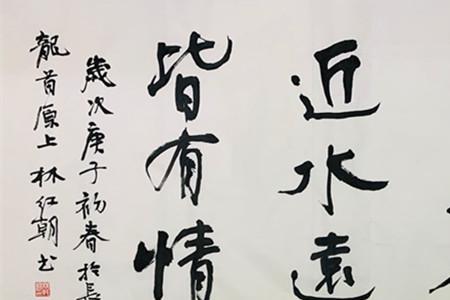 近水遠
皆有情
歲次庚子初春於長
龍首原上林红朝书